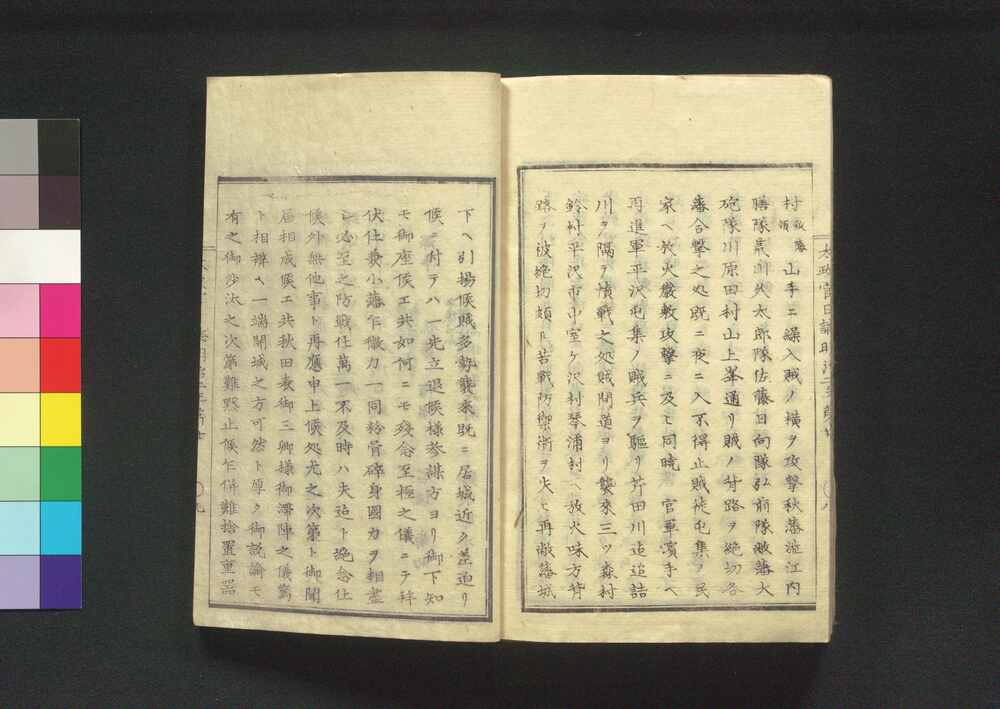 村 山手ニ繰入賊ノ横ヲ攻撃秋藩澁江内
膳隊荒川久太郎隊佐藤日向隊弘前隊敝藩大
砲隊川原田村山上峯通リ賊ノ背路ヲ絶切各
藩合撃之処既ニ夜ニ入不得止賊徒屯集ノ民
家ヘ放火厳敷攻撃ニ及ヒ同暁 官軍濱手ヘ
再進軍平沢屯集ノ賊兵ヲ駆リ芹田川迄追詰
川ヲ隔テ憤戦之処賊間道ヨリ襲来三ッ森村
鈴村平沢市中室ケ沢村琴浦村ヘ放火味方背
路ヲ被絶切頻ニ苦戦防禦術ヲ失ヒ再敝藩城
下ヘ引揚候賊多勢襲来既ニ居城近ク差迫リ
候ニ付テハ一先立退候様参謀方ヨリ御下知
モ御座候エ共如何ニモ残念至極之儀ニテ
伏仕兼小藩乍微力一同粉骨碎身國力ヲ相盡
シ必至之防戦仕萬一不及時ハ夫迄ト絶念仕
候外無他事ト再應申上候処尤之次第ト御聞
届相成候エ共秋田表御三卿様御滞陣之儀篤
ト相辨ヘ一端開城之方可然ト厚ク御説諭モ
有之御沙汰之次第難黙止候乍併難捨置重器